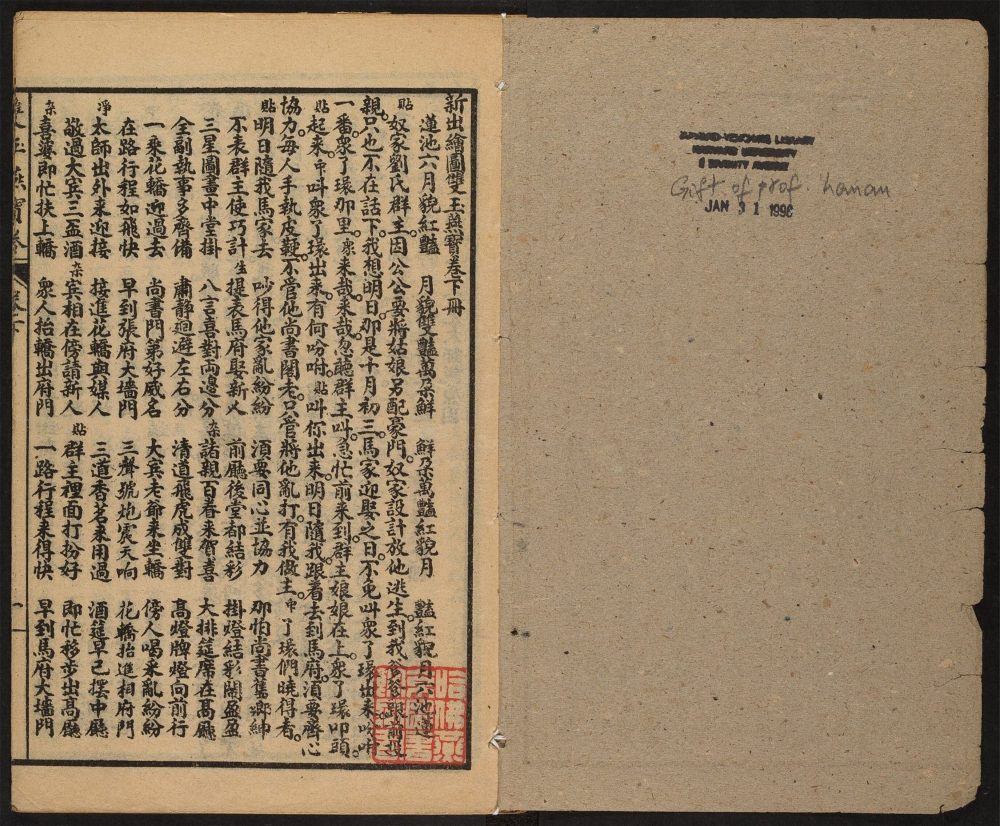 新出繪圖雙玉燕寳卷下冊
貼
蓮池六月貌紅豔 月貌雙豔萬朶鮮 鮮朶萬豔紅貌月 豔紅貌月六池蓮
奴家劉氏群主因公公要將姑娘另配豪門奴家設計放他逃生到我爹爹跟前
親只也不在話下我想明日那是十月初三馬家迎娶之日不免叫衆了環出來吩咐
一番衆了環那里衆来哉来哉忽聽群主叫急忙前来到群主娘娘在上衆了環叩頭
貼起来中叫衆了環出来有何吩咐貼叫你出来明日隨我跟着去到馬府須要齊心
協力每人手執皮鞭不管他尚書閣老只管將他亂打有我做主中了環們曉得者
貼明日隨我馬家去 吵得他家亂紛紛 須要同心並協力 那怕尚書舊鄉紳
不表群主使巧計 生提表馬府娶新人 前廳後堂都結彩 掛燈結彩鬧盈盈
三星圖畫中堂掛 八言喜對兩邊分 杂諸親百眷来賀喜 大排筵席在髙廳
全副執事多齊備 肅靜廻避左右分 清道飛虎成雙對 髙燈牌燈向前行
一乘花轎迎過去 尚書門第好威名 大宾老爺来坐轎 傍人喝采亂紛紛
在路行程如飛快 早到張府大墻門 三聲號炮震天响 花轎抬進相府門
淨太師出外来迎接 接進花轎與媒人 三道香茗来用過 酒筵早已擺中廳
敬過大宾三盃酒 杂宾相在傍請新人 貼群主裡面打扮好 即忙移步出髙廳
杂喜婆即忙扶上轎 衆人抬轎出府門 一路行程来得快 早到馬府大墻門
一
HARVARD-YENCHING LIBRARY
HARVARD UNIVERSITY
Gift of prof. Hanan
JAN 31 1996